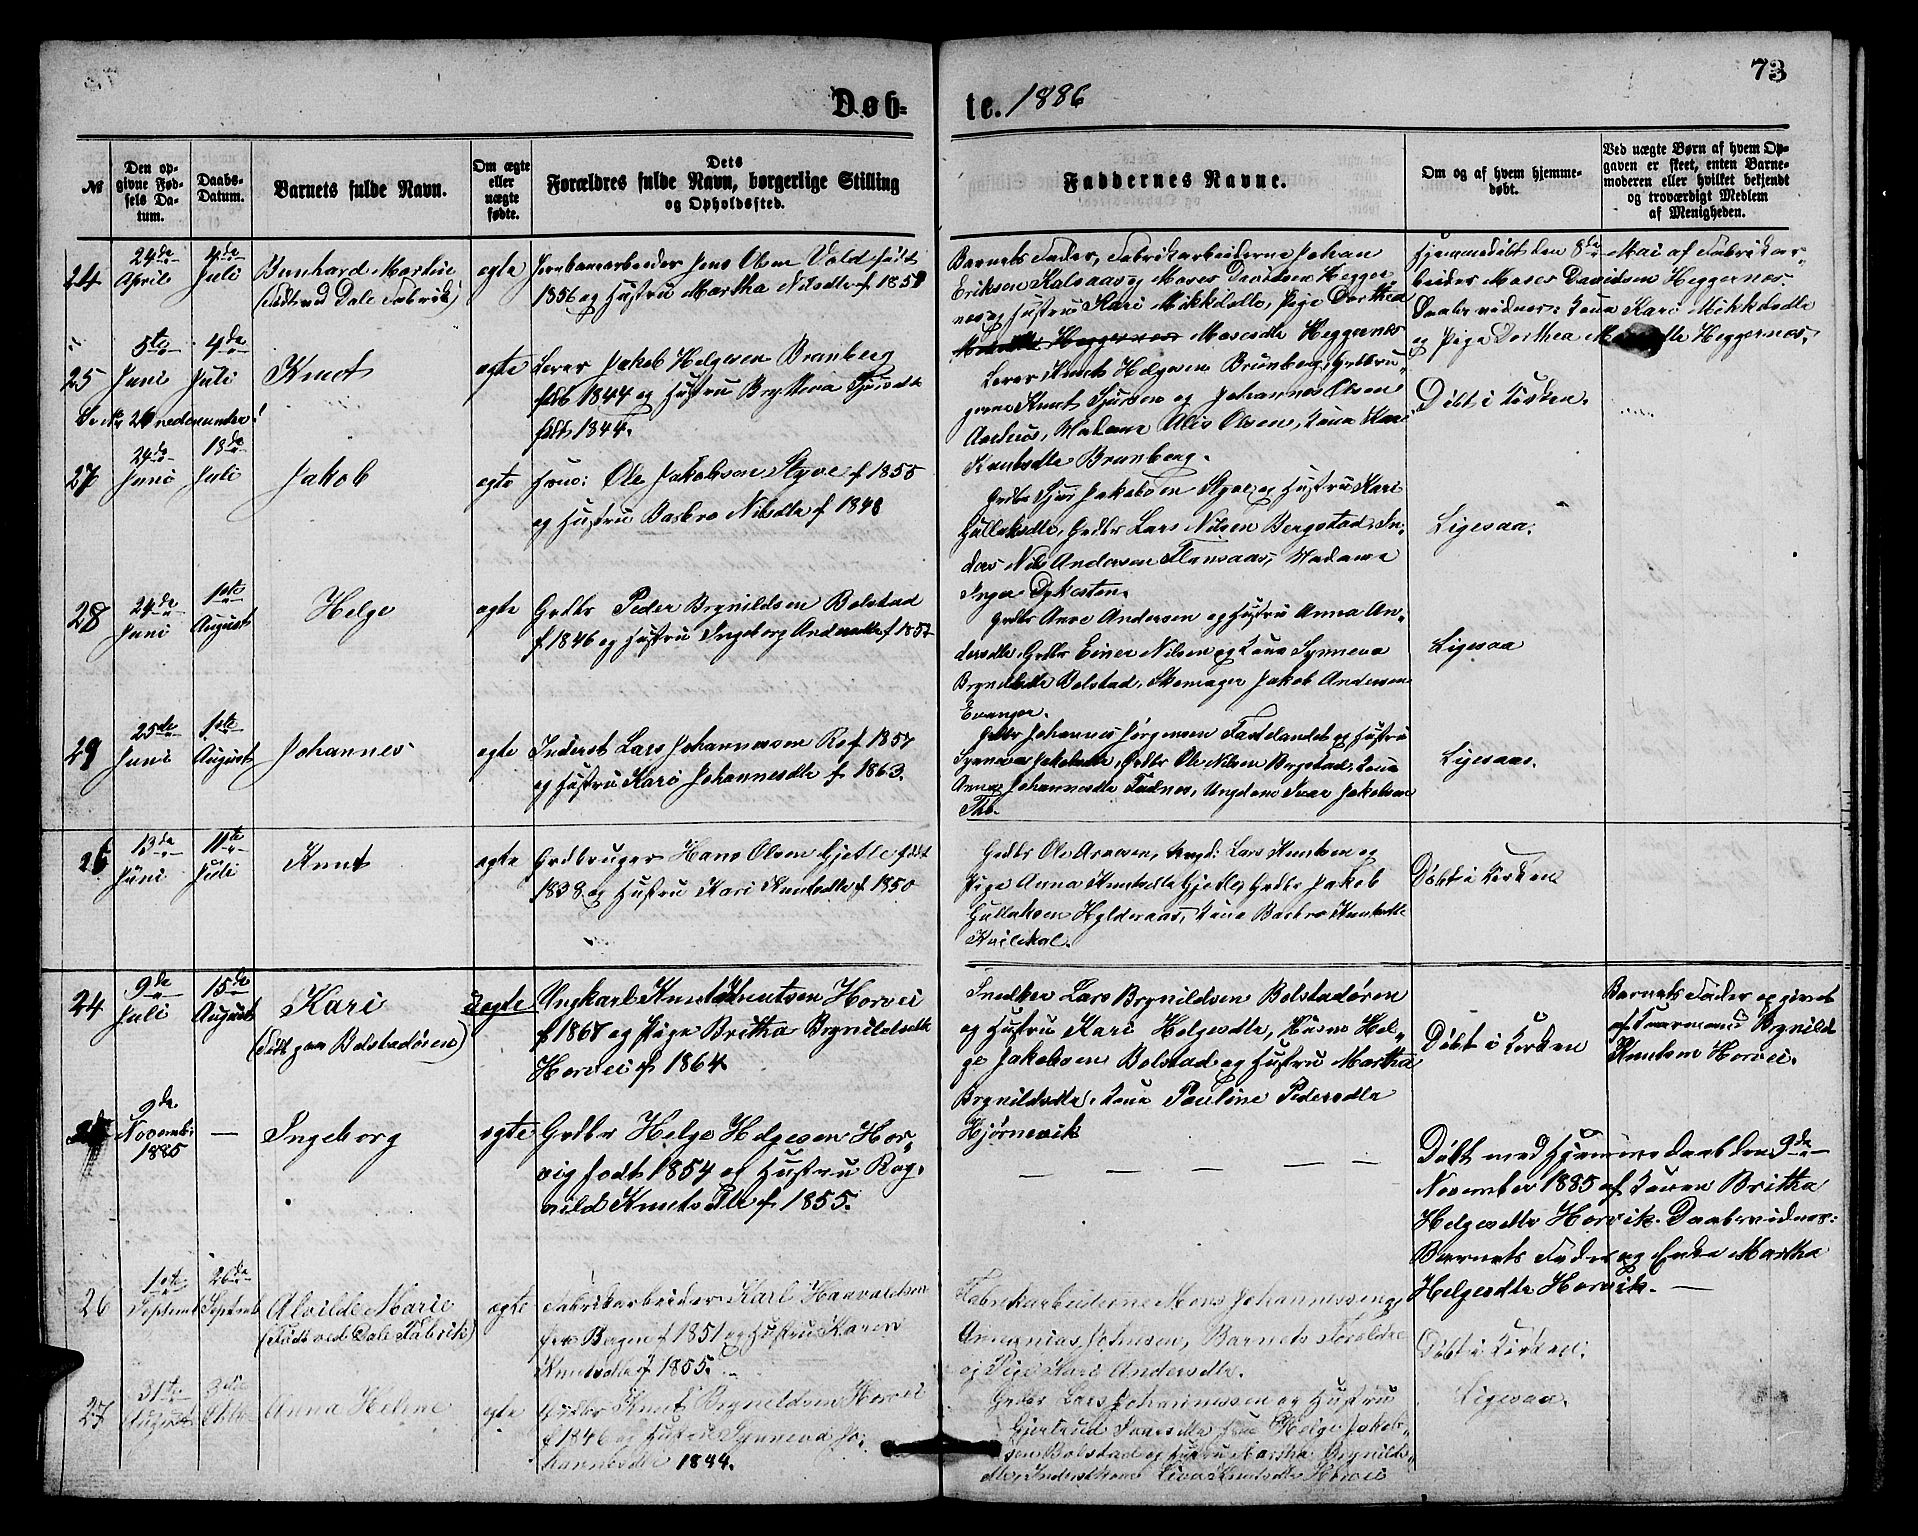 73
Døb-
te. 1886
№
Den op-
givne Fød-
sels Da-
tum.
Daabs-
Datum.
Barnets fulde Navn.
Om ægte
eller
uægte
fødte.
Dets
Forældres fulde Navn, borgerlige Stilling
og Opholdssted.
Faddernes Navne.
Om og af hvem hjemme-
døbt.
Ved uægte Børn af hvem Op-
gaven er skeet, enten Barne-
moderen eller hvilket bekjendt
og troværdigt Medlem
af Menigheden.
24
24de
April
4de
Juli
Bernhard Martin
(født ved Dale Fabrik)
egte
Jernbanearbeider Jens Olsen Vold født
1856 og Hustru Martha Nilsdtr f 1857
Barnets Fader, Fabrikarbeiderne Johan
Eriksen Kalsaas og Moses Davidsen Hegger
nes og Hustru Kari Mikkelsdtr, Pige Dorthea
Mosesdtr Heggernes
Hjemmedøbt den 8de Mai af Fabrikar-
beider Moses Davidsen Heggernes.
Daabsvidner: Kona Kari Mikkelsdtr
og Pige Dorthea Heggernes,
25
5te
Juni
4de
Juli
Knut
egte
Lærer Jakob Helgesen Brunborg
født 1844 og Hustru Brytteva Sjursdtr
født 1844.
Lærer Knut Helgesen Brunborg, Grdbru-
gerne Knut Sjursen og Johannes Olsen
Aarhus, Madame Alis Olsen, Kona Kari
Knutsdtr Brunborg.
Døbt i Kirken.
Se № 26 nedenunder!
27
24de
Juni
18de
Juli
Jakob
egte
Huus: Ole Jakobsen Styve f 1855
og Hustru Barbro Nilsdtr f 1848
Grdbr Sjur Jakobsen Styve og Hustru Kari
Gullaksdtr, Grdbr Lars Nilsen Bergstad, In-
derst Nils Andersen Flansaas, Madame
Inger Dykesten.
Ligesaa.
28
24de
Juni
1ste
August
Helge
egte
Grdbr Peder Brynildsen Bolstad
f 1846 og Hustru Ingeborg Andersdtr f 1857
Grdbr Anve Andersen og Hustru Anna An-
dersdtr, Grdbr Einer Nilsen og Kona Synneva
Brynildsdtr Bolstad, Skomager Jakob Andersen
Evanger.
Ligesaa
29
25de
Juni
1ste
August
Johannes
egte
Inderst Lars Johannessen Ro f 1857
og Hustru Kari Johannesdtr f 1863.
Grdbr Johannes Jørgensen Fastelandet og Hustru
Synneva Jakobsdtr, Grdbr Ole Nilsen Bergstad, Kona
Anna Johannesdtr Fadnes, Ungdom Ivar Jakobsen
Ligesaa.
26
13de
Juni
11te
Juli
Knut
egte
Grdbruger Hans Olsen Gjetle født
1838 og Hustru Kari Knutsdtr f 1850
Grdbr Ole Arnesen, Ungd: Lars Knutsen og
Pige Anna Knutsdtr Gjetle, Grdbr Jakob
Gullaksen Hylderaas, Kona Barbro Knutsdtr
Kvilekval.
Døbt i Kirken
24
9de
Juli
15de
August
Kari
(født paa Bolstadøren)
uegte
Ungkarl Knut Knutsen Horvei
f 1867 og Pige Britha Brynildsdtr
Horvei f 1864.
Snedker Lars Brynildsen Bolstadøren
og Hustru Kari Helgesdtr, Husm Hel-
ge Jakobsen Bolstad og Hustru Martha
Brynildsdtr, Kona Pauline Pedersdtr
Hjørnevik
Døbt i Kirken
Barnets Fader opgivet
af Kaarmand Brynild
Knutsen Horvei.
25
9de
Novemb:
1885
—
Ingeborg
egte
Grdbr Helge Helgesen Hor-
vig født 1854 og Hustru Rag-
nild Knutsdtr f 1855.
— — — — —
Døbt med Hjemmedaab den 9de
November 1885 af Konen Britha
Helgesdtr Horvik. Daabsvidner:
Barnets Fader og Enke Martha
Helgesdtr Horvik. —
26
1ste
Septemb
26de
Septemb
Alvilde Marie
(født ved Dale Fabrik)
egte
Fabrikarbeider Karl Haavaldsen
fra Bergen f 1851 og Hustru Karen
Knutsdtr f 1855.
Fabrikarbeiderne Mons Johannessen og
Annanias Johnsen, Barnets Forældre
og Pige Kari Andersdtr.
Døbt i Kirken.
27
31te
August
3die
Oktbr
Anna Helene
egte
Grdbr Knut Brynildsen Horvei
f 1846 og Hustru Synneva Jo-
hannesdtr 1844.
Grdbr Lars Johannessen og Hustru
Gjertrud Ivarsdtr Helge Jakob-
sen Bolstad og Hustru Martha Brynilds-
dtr, Kona Knutsdtr Horvei
Ligesaa.